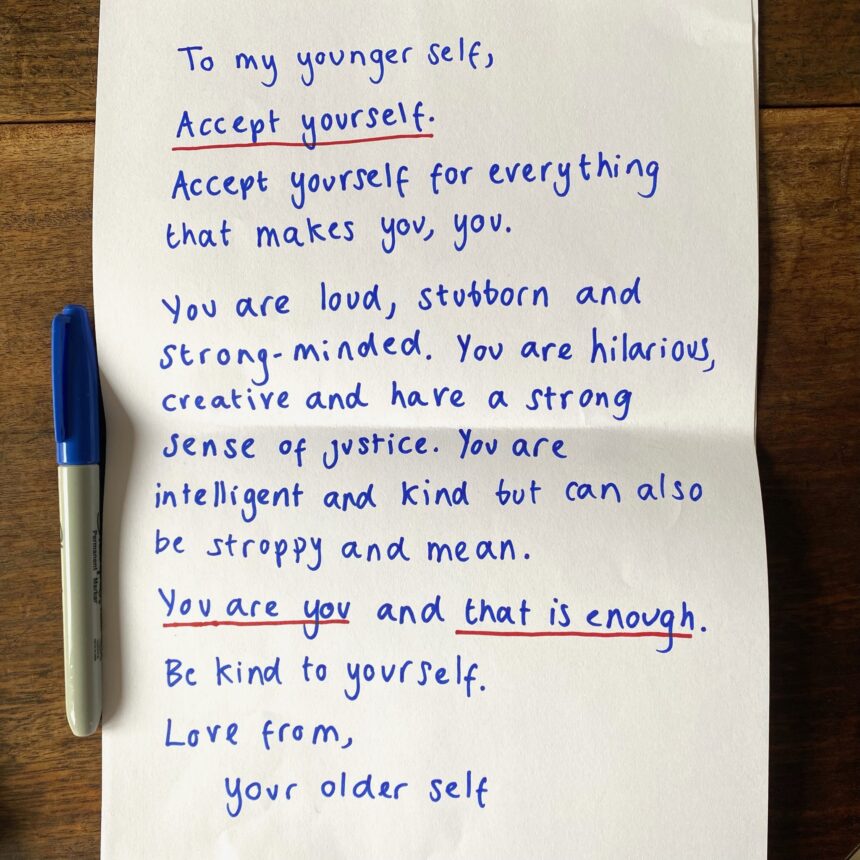 To my younger self,
Accept yourself.
Accept yourself for everything
that makes you, you.
You are loud, stubborn and
strong-minded. You are hilarious,
creative and have a strong
sense of justice. You are
intelligent and kind but can also
be stroppy and mean.
You are you and that is enough.
Be kind to yourself.
Love from,
your older self
Permanent Marker